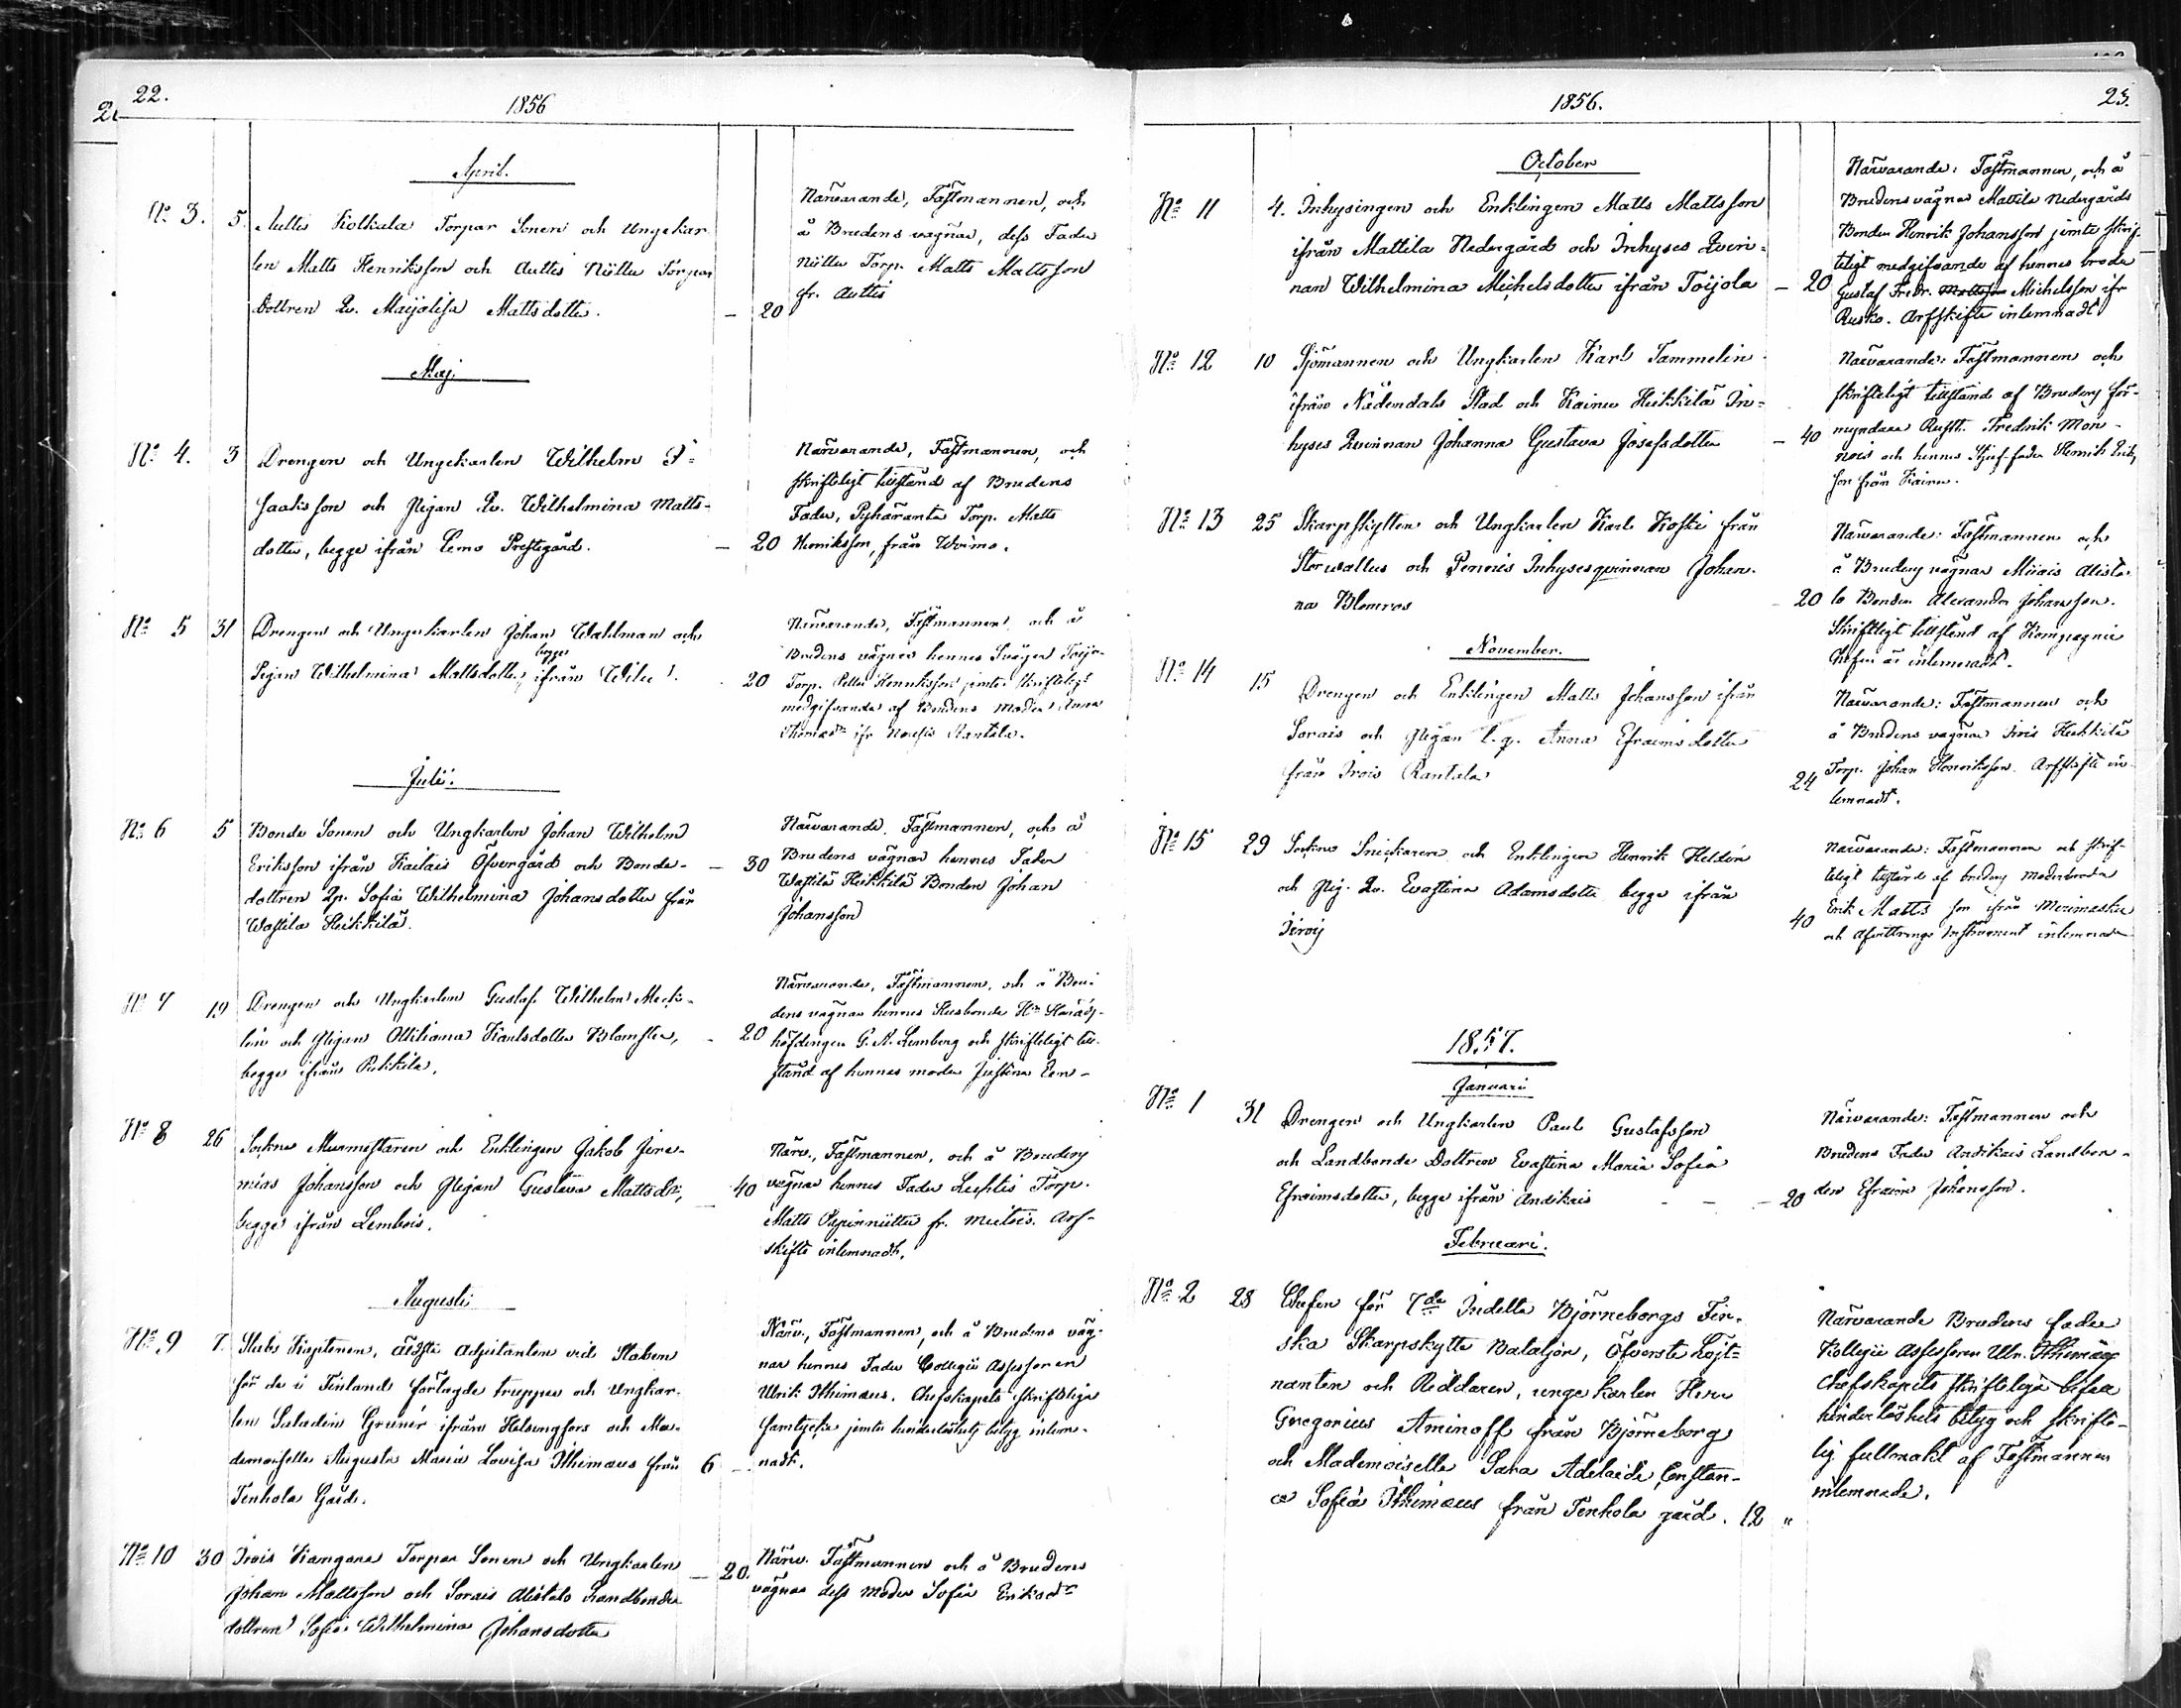 22.
1856
April.
No 3. 5. Auttis Kolkala Torpar Sonen och Ungekar-
len Matts Henriksson och Auttis Niittu Torpar
Dottren Qv. Maijalisa Mattsdotter. — 20
Närvarande, Fästmannen, och
å Brudens vägnar, dess Fader
Niittu Torp. Matts Mattsson
fr. Auttis
Maj.
No 4. 3 Drengen och Ungekarlen Wilhelm I-
saaksson och Pigan Qv. Wilhelmina Matts-
dotter, begge ifrån Lemo Prestegård. — 20
Närvarande, Fästmannen, och
skrifteligt tillstånd af Brudens
Fader, Pyhäranta Torp. Matts
Henriksson, från
No 5 31 Drengen och Ungekarlen Johan Wahlman och
begge
Pigan Wilhelmina Mattsdotter, ifrån Wilu. 20
Närvarande, Fästmannen och å
Brudens vägnar hennes Svåger
Torp. Petter Henriksson jemte skrifteligt
medgifvande af Brudens Moder Anna
Thomasdr ifr Nousis Rantala.
Julii.
No 6 5 Bonde Sonen och Ungkarlen Johan Wilhelm
Eriksson ifrån Kailais Öfvergård och Bonde-
dottren Qp. Sofia Wilhelmina Johansdotter från
Wastila Heikkilä. — 30
Närvarande, Fästmannen, och å
Brudens vägnar hennes Fader
Wastila Heikkilä Bonden Johan
Johansson
No 7 19 Drengen och Ungkarlen Gustaf Wilhelm Meck-
lin och Pigan Ottiliana Karlsdotter Blomster,
begge ifrån Pukkila. 20
Närvarande, Fästmannen, och å Bru-
dens vägnar hennes Husbonde Hr Härads-
höfdingen G. A. Lemberg och skrifteligt till-
stånd af hennes moder Justina
No 8 26 Sockne Murmestaren och Enklingen Jakob Jere-
mias Johansson och Pigan Gustava Mattsdr,
begge ifrån Lembois. — 40
Närv., Fästmannen, och å Brudens
vägnar hennes Fader Torp.
Matts fr. Mietois. Arf-
skifte inlemnadt.
Augusti
No 9 7. Stabs Kapitenen, äldste Adjutanten vid Staben
för de i Finland förlagde trupper och Ungkar-
len Saladin Gruner ifrån Helsingfors och Ma-
demoiselle Augusta Maria Lovisa Ithimæus från
Tenhola Gård. 6 —
Närv., Fästmannen, och å Brudens väg-
nar hennes Fader Collegii Assessoren
Ulrik Ithimæus. Chefskapets skriftliga
samtycke jemte hinderlöshets betyg inlem-
nadt.
No 10 30 Irois Kangas Torpar Sonen och Ungkarlen
Johan Mattsson och Sorais Alistalo Landbonde
dottren Sofia Wilhelmina Johansdotter — 20.
Närv. Fästmannen och å Brudens
vägnar dess moder Sofia Eriksdr
1856.
23.
October
No 11 4. Inhysingen och Enklingen Matts Mattsson
ifrån Mattila Nedergård och Inhyses Qvin-
nan Wilhelmina Michelsdotter ifrån Toijola — 20
Närvarande: Fästmannen, och å
Brudens vägnar Mattila Nedergårds
Bonden Henrik Johansson jemte skrif-
teligt medgifvande af hennes broder
Gustaf Fredr. Mattsson Michelsson ifr
Rusko. Arfskifte inlemnadt
No 12 10 Sjömannen och Ungkarlen Karl Tammelin
ifrån Nådendals Stad och Kainu Heikkilä In-
hyses Qvinnan Johanna Gustava Josefsdotter — 40
Närvarande: Fästmannen och
skrifteligt tillstånd af Brudens för-
myndare Rustt. Fredrik
och hennes Stjuf-fader Henrik Eriks-
son från Kainu.
No 13 25 Skarpskytten och Ungkarlen Karl Koski från
Storwallus och Pernois Inhysesqvinnan Johan-
na Blomros 20
Närvarande: Fästmannen och
å Brudens vägnar Miiais Alista-
lo Bonden Alexander Johansson.
Skriftligt tillstånd af Kompagnie
Chefen är inlemnadt.
November.
No 14 15 Drengen och Enklingen Matts Johansson ifrån
Sorais och Pigan l. q. Anna Efraimsdotter
från Irois Rantala 24
Närvarande: Fästmannen och
å Brudens vägnar Irois Heikkilä
Torp. Johan Henriksson. Arfskifte in-
lemnadt.
No 15 29 Sockne Snickaren och Enklingen Henrik Heldén
och Pig. Qv. Evastina Adamsdotter begge ifrån
40
Närvarande: Fästmannen och skrif-
teligt tillstånd af brudens moderbroder
Erik Matts son ifrån Merimasku
och Afvittrings Instrument inlemnade
1857.
Januari
No 1 31 Drengen och Ungkarlen Paul Gustafsson
och Landbonde Dottren Evastina Maria Sofia
Efraimsdotter, begge ifrån Andikais — — 20
Närvarande: Fästmannen och
Brudens Fader Andikais Landbon-
den Efraim Johansson.
Februari.
No 2 28 Chefen för 7de Indelta Björneborgs Fin-
ska Skarpskytte Bataljon, Öfverste Löjt-
nanten och Riddaren, unge karlen Herr
Gregorius Aminoff från Björneborg
och Mademoiselle Sara Adelaide Constan-
ce Sofia Ithimæus från Tenhola gård. 12 "
Närvarande Brudens fader
Kollegii Assessoren Ulr. Ithimæus
Chefskapets skrifteliga bifall
hinderlöshets betyg och skrifte-
lig fullmakt af Fästmannen
inlemnade.